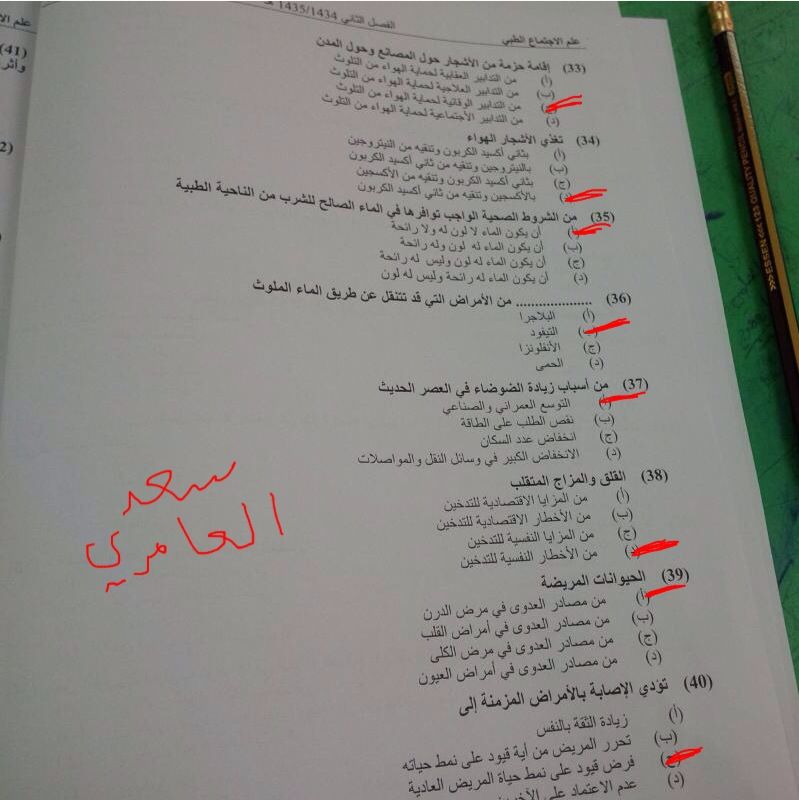 علم الاجتماع الطبي
الفصل الثاني 1435/1434 هـ
(33) إقامة حزمة من الأشجار حول المصانع وحول المدن
(أ) من التدابير العقابية لحماية الهواء من التلوث
(ب) من التدابير العلاجية لحماية الهواء من التلوث
من التدابير الوقائية لحماية الهواء من التلوث
(د) من التدابير الأجتماعية لحماية الهواء من التلوث
(34) تغذي الأشجار الهواء
(أ) بثاني أكسيد الكربون وتنقيه من النيتروجين
(ب) بالنيتروجين وتنقيه من ثاني أكسيد الكربون
(ج) بثاني أكسيد الكربون وتنقيه من الأكسجين
(د) بالأكسجين وتنقيه من ثاني أكسيد الكربون
(35) من الشروط الصحية الواجب توافرها في الماء الصالح للشرب من الناحية الطبية
(أ) أن يكون الماء لا لون له ولا رائحة
(ب) أن يكون الماء له لون وله رائحة
(ج) أن يكون الماء له لون وليس له رائحة
(د) أن يكون الماء له رائحة وليس له لون
(36) .................... من الأمراض التي قد تنتقل عن طريق الماء الملوث
(أ) البلاجرا
(ب) التيفود
(ج) الأنفلونزا
(د) الحمى
(37) من أسباب زيادة الضوضاء في العصر الحديث
(أ) التوسع العمراني والصناعي
(ب) نقص الطلب على الطاقة
(ج) انخفاض عدد السكان
(د) الانخفاض الكبير في وسائل النقل والمواصلات
(38) القلق والمزاج المتقلب
(أ) من المزايا الاقتصادية للتدخين
(ب) من الأخطار الاقتصادية للتدخين
(ج) من المزايا النفسية للتدخين
(د) من الأخطار النفسية للتدخين
(39) الحيوانات المريضة
(أ) من مصادر العدوى في مرض الدرن
(ب) من مصادر العدوى في أمراض القلب
(ج) من مصادر العدوى في مرض الكلى
(د) من مصادر العدوى في أمراض العيون
(40) تؤدي الإصابة بالأمراض المزمنة إلى
(أ) زيادة الثقة بالنفس
(ب) تحرر المريض من أية قيود على نمط حياته
(ج) فرض قيود على نمط حياة المريض العادية
(د) عدم الاعتماد على
سعد
العامري
(41)
ESSEN <<< 123 QUALITY PENCIL